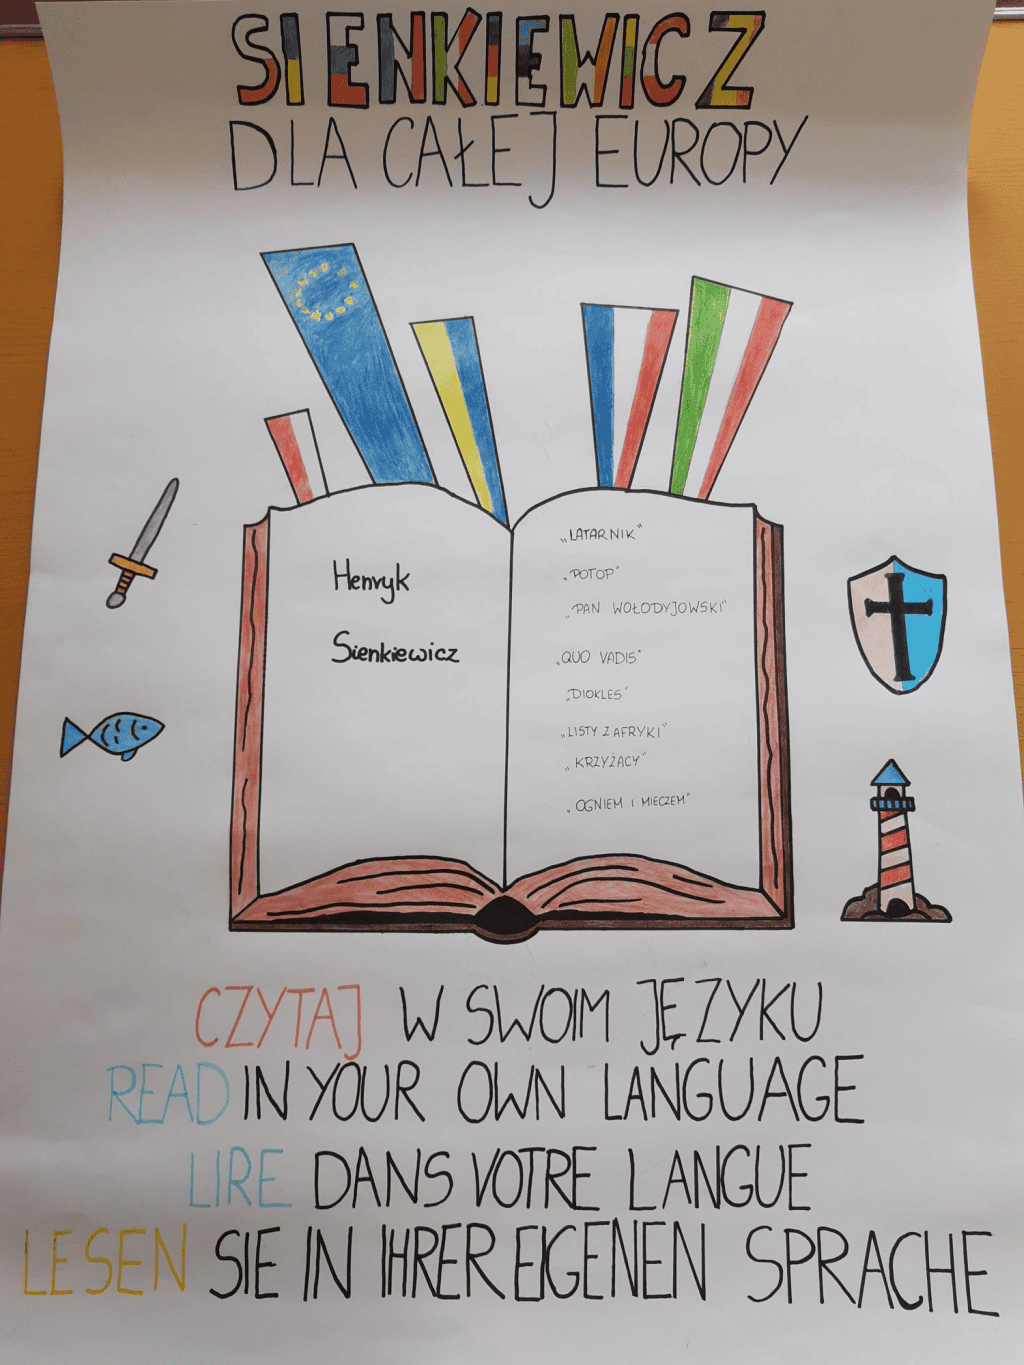 SIENKIEWICZ
DLA CAŁEJ EUROPY
Henryk
Sienkiewicz
„LATARNIK"
„POTOP"
„PAN WOŁODYJOWSKI"
„QUO VADIS"
„DIOKLES"
„LISTY Z AFRYKI"
„KRZYŻACY"
„OGNIEM I MIECZEM"
CZYTAJ W SWOIM JĘZYKU
READ IN YOUR OWN LANGUAGE
LIRE DANS VOTRE LANGUE
LESEN SIE IN IHRER EIGENEN SPRACHE